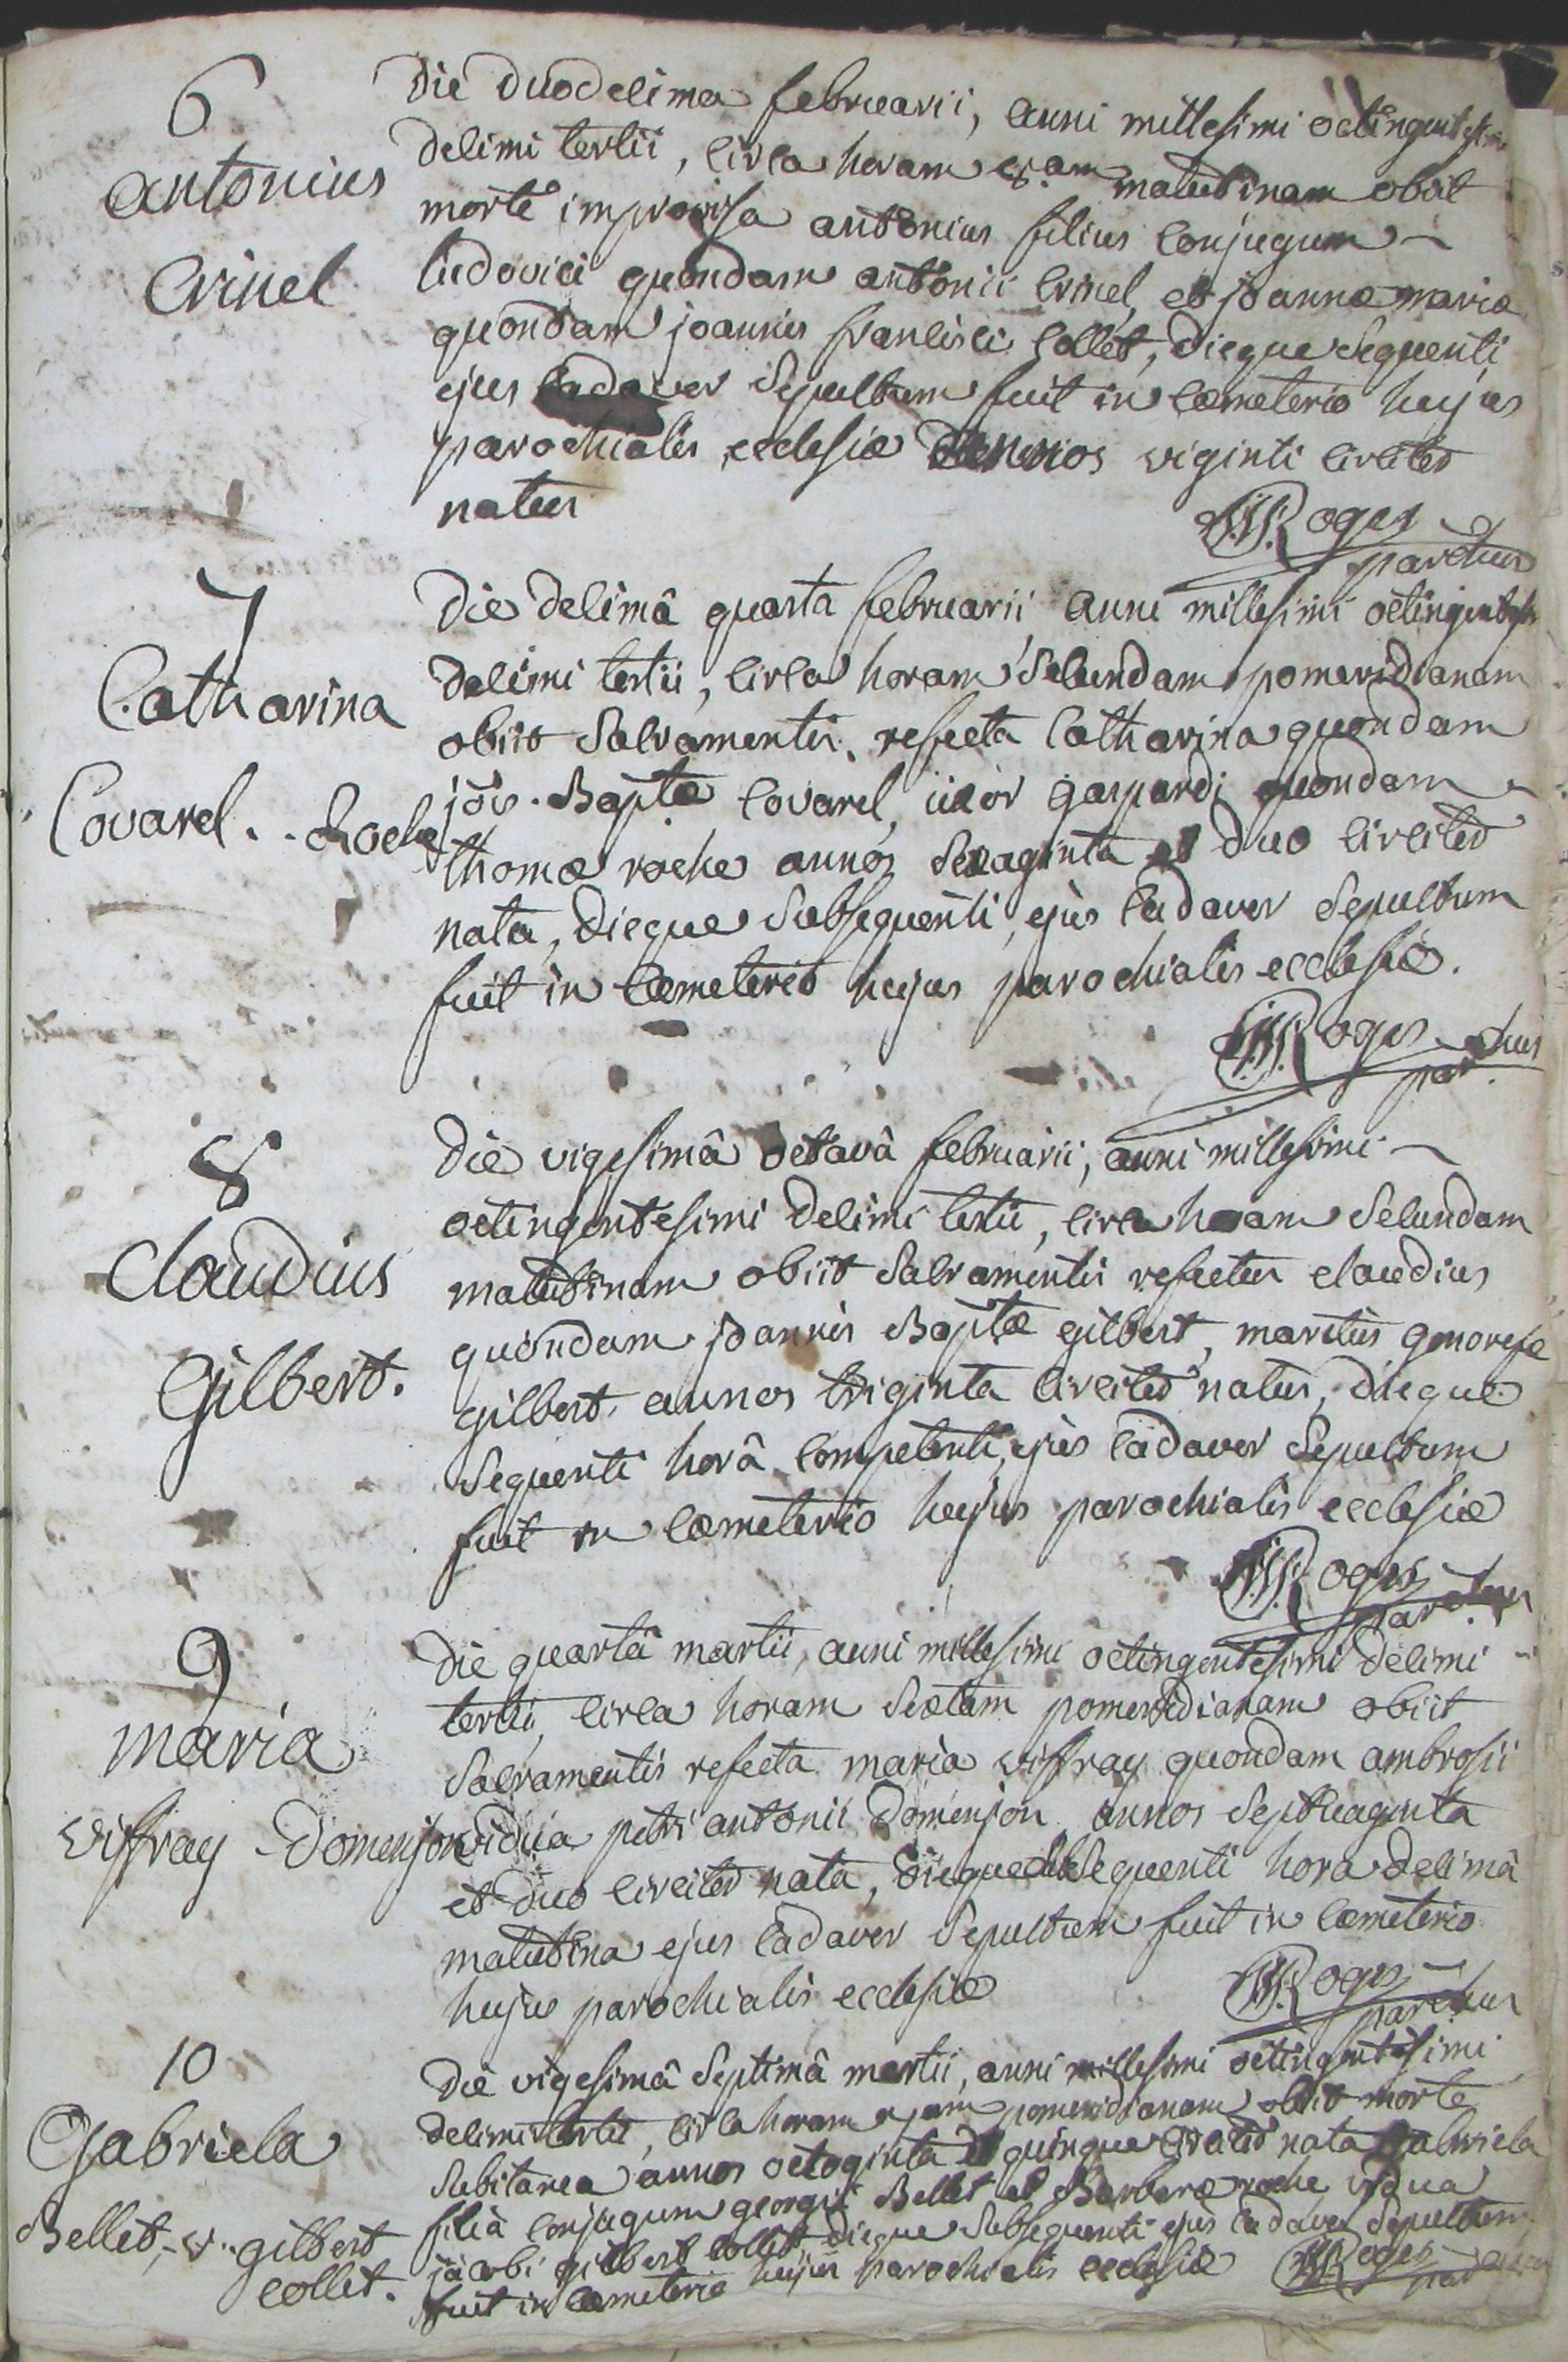 6
Antonius
Crinel
Die duodecima februarii, anni millesimi octingentesimi
decimi tertii, circa horam matutinam obiit
morte improvisa antonius filius conjugum
ludovici quondam antonii Crinel, et joannæ mariæ
quondam joannis francisci Collet, dieque sequenti
ejus cadaver sepultum fuit in cœmeterio hujus
parochialis ecclesiæ annos viginti circiter
natus
Roges
parochus
7
Catharina
Covarel.. Roche
Die decimâ quarta februarii anni millesimi octingentesimi
decimi tertii, circa horam secundam pomeridianam
obiit Sacramentis refecta Catharina quondam
jõis. Baptæ Covarel, uxor gaspardi quondam
thomæ roche annos sexaginta et duo circiter
nata, dieque subsequenti, ejus cadaver sepultum
fuit in cœmeterio hujus parochialis ecclesiæ.
Roges
par.chus
8
Claudius
Gilbert.
Die vigesimâ octavâ februarii, anni millesimi
octingentesimi decimi tertii, circa horam secundam
matutinam obiit Sacramentis refectus claudius
quondam joannis Baptæ gilbert, maritus genovefæ
gilbert, annos triginta circiter natus, dieque
sequenti horâ competenti, ejus cadaver sepultum
fuit in cœmeterio hujus parochialis ecclesiæ
Roges
parochus
9
maria
viffray - Domenjon
Die quartâ martii, anni millesimi octingentesimi decimi
tertii, circa horam sextam pomeridianam obiit
Sacramentis refecta maria viffray quondam ambrosii
vidua petri antonii Domenjon annos septuaginta
et duo circiter nata, dieque sequenti hora decimâ
matutina ejus cadaver sepultum fuit in cœmeterio
hujus parochialis ecclesiæ
Roges
parochus
10
Gabriela
Bellet, v. gilbert
collet.
Die vigesimâ septimâ martii, anni millesimi octingentesimi
decimi tertii, circa horam pomeridianam obiit morte
subitanea annos octoginta et quinque circiter nata gabriela
filia conjugum georgii Bellet et Barbaræ roche vidua
jacobi gilbert collet dieque subsequenti ejus cadaver sepultum
fuit in cœmeterio hujus parochialis ecclesiæ
Roges
parochus